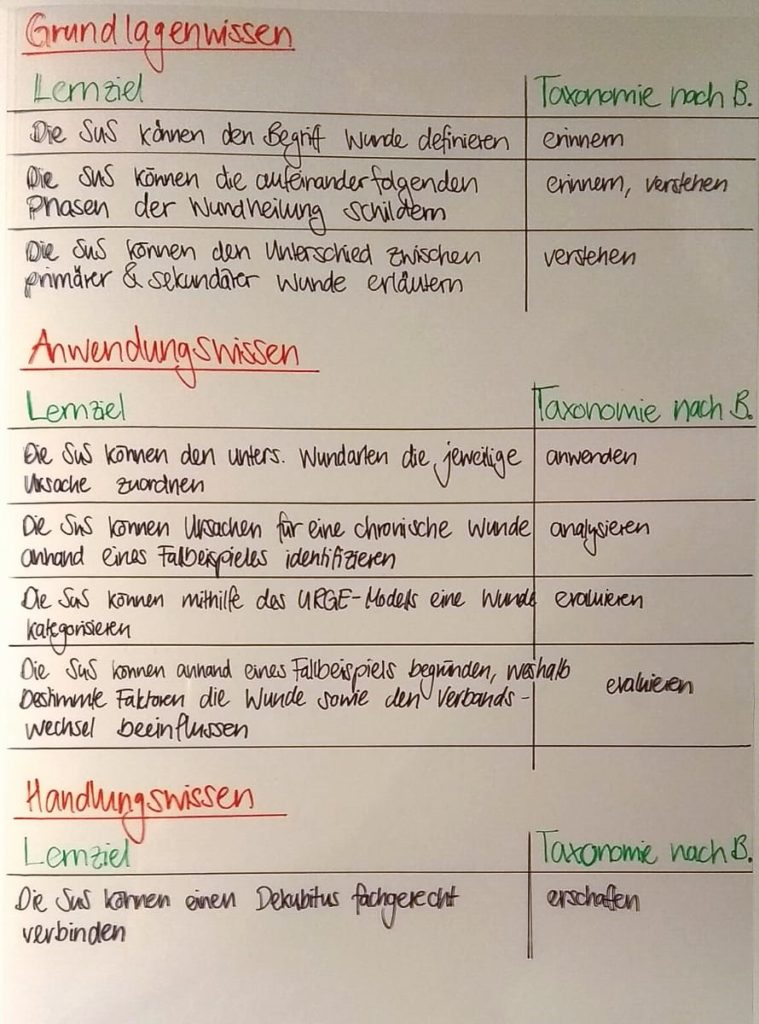 Grundlagenwissen
Lernziel Taxonomie nach B.
Die SuS können den Begriff Wunde definieren erinnern
Die SuS können die aufeinanderfolgenden erinnern, verstehen
Phasen der Wundheilung schildern
Die SuS können den Unterschied zwischen verstehen
primärer & sekundärer Wunde erläutern
Anwendungswissen
Lernziel Taxonomie nach B.
Die SuS können den unters. Wundarten die jeweilige anwenden
Ursache zuordnen
Die SuS können Ursachen für eine chronische Wunde analysieren
anhand eines Fallbeispieles identifizieren
Die SuS können mithilfe des URGE-Models eine Wunde evaluieren
kategorisieren
Die SuS können anhand eines Fallbeispiels begründen, weshalb
bestimmte Faktoren die Wunde sowie den Verbands- evaluieren
wechsel beeinflussen
Handlungswissen
Lernziel Taxonomie nach B.
Die SuS können einen Dekubitus fachgerecht erschaffen
verbinden